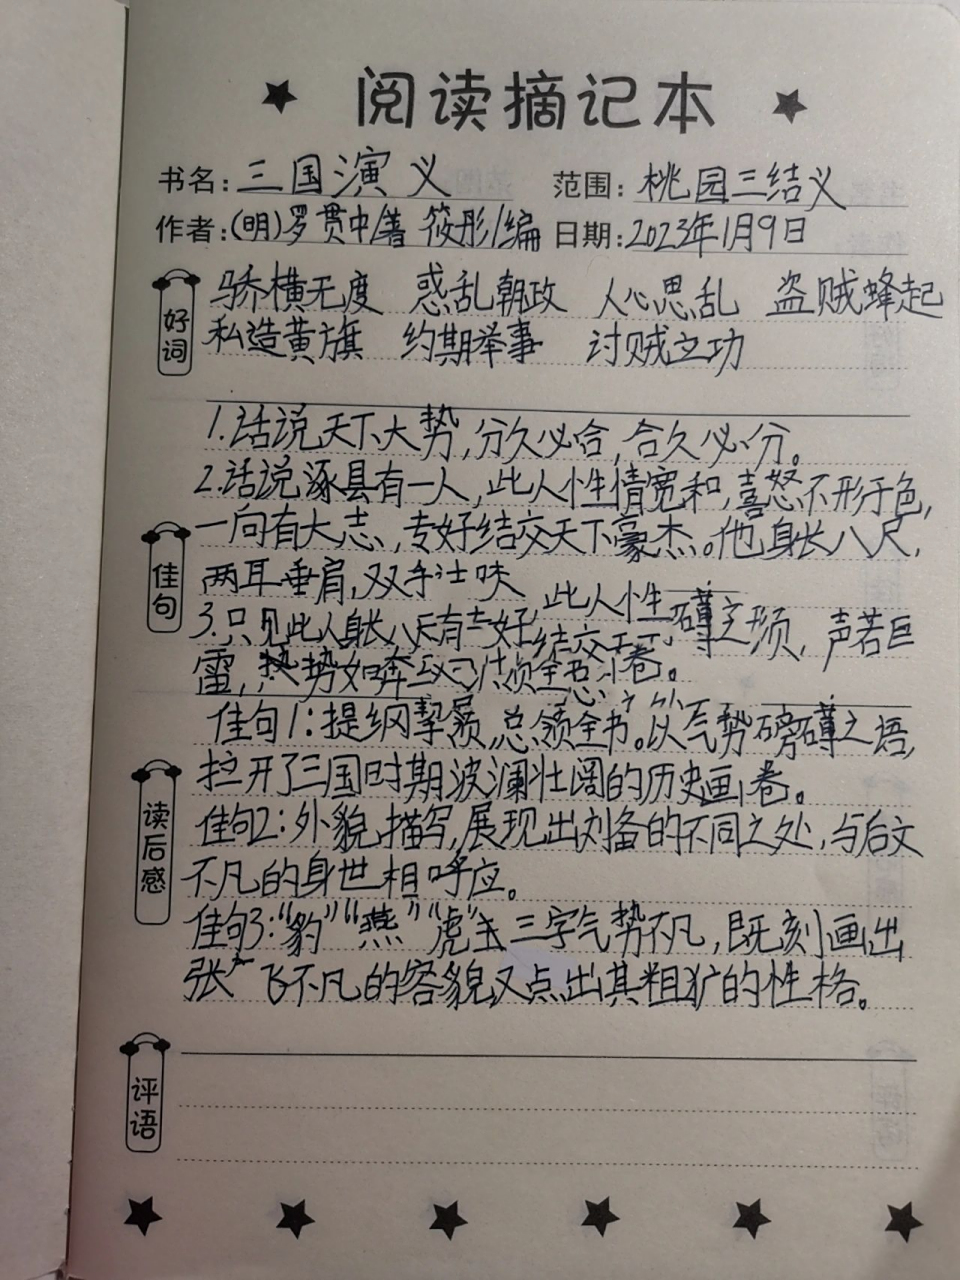 阅读摘记本
书名：三国演义 范围：桃园三结义
作者：(明)罗贯中/著 筱彤/编 日期：2023年1月9日
好词
骄横无度 惑乱朝政 人心思乱 盗贼蜂起
私造黄旗 约期举事 讨贼之功
佳句
1.话说天下大势，分久必合，合久必分。
2.话说涿县有一人，此人性情宽和，喜怒不形于色，
一向有大志，专好结交天下豪杰。他身长八尺，
两耳垂肩，双手
此人性
3.只见此人身长八 之须，声若巨
雷，势如奔
读后感
佳句1：提纲挈领，总领全书。以气势磅礴之语，
拉开了三国时期波澜壮阔的历史画卷。
佳句2：外貌描写，展现出刘备的不同之处，与后文
不凡的身世相呼应。
佳句3：“豹”“燕”“虎” 三字气势不凡，既刻画出
张飞不凡的容貌又点出其粗犷的性格。
评语